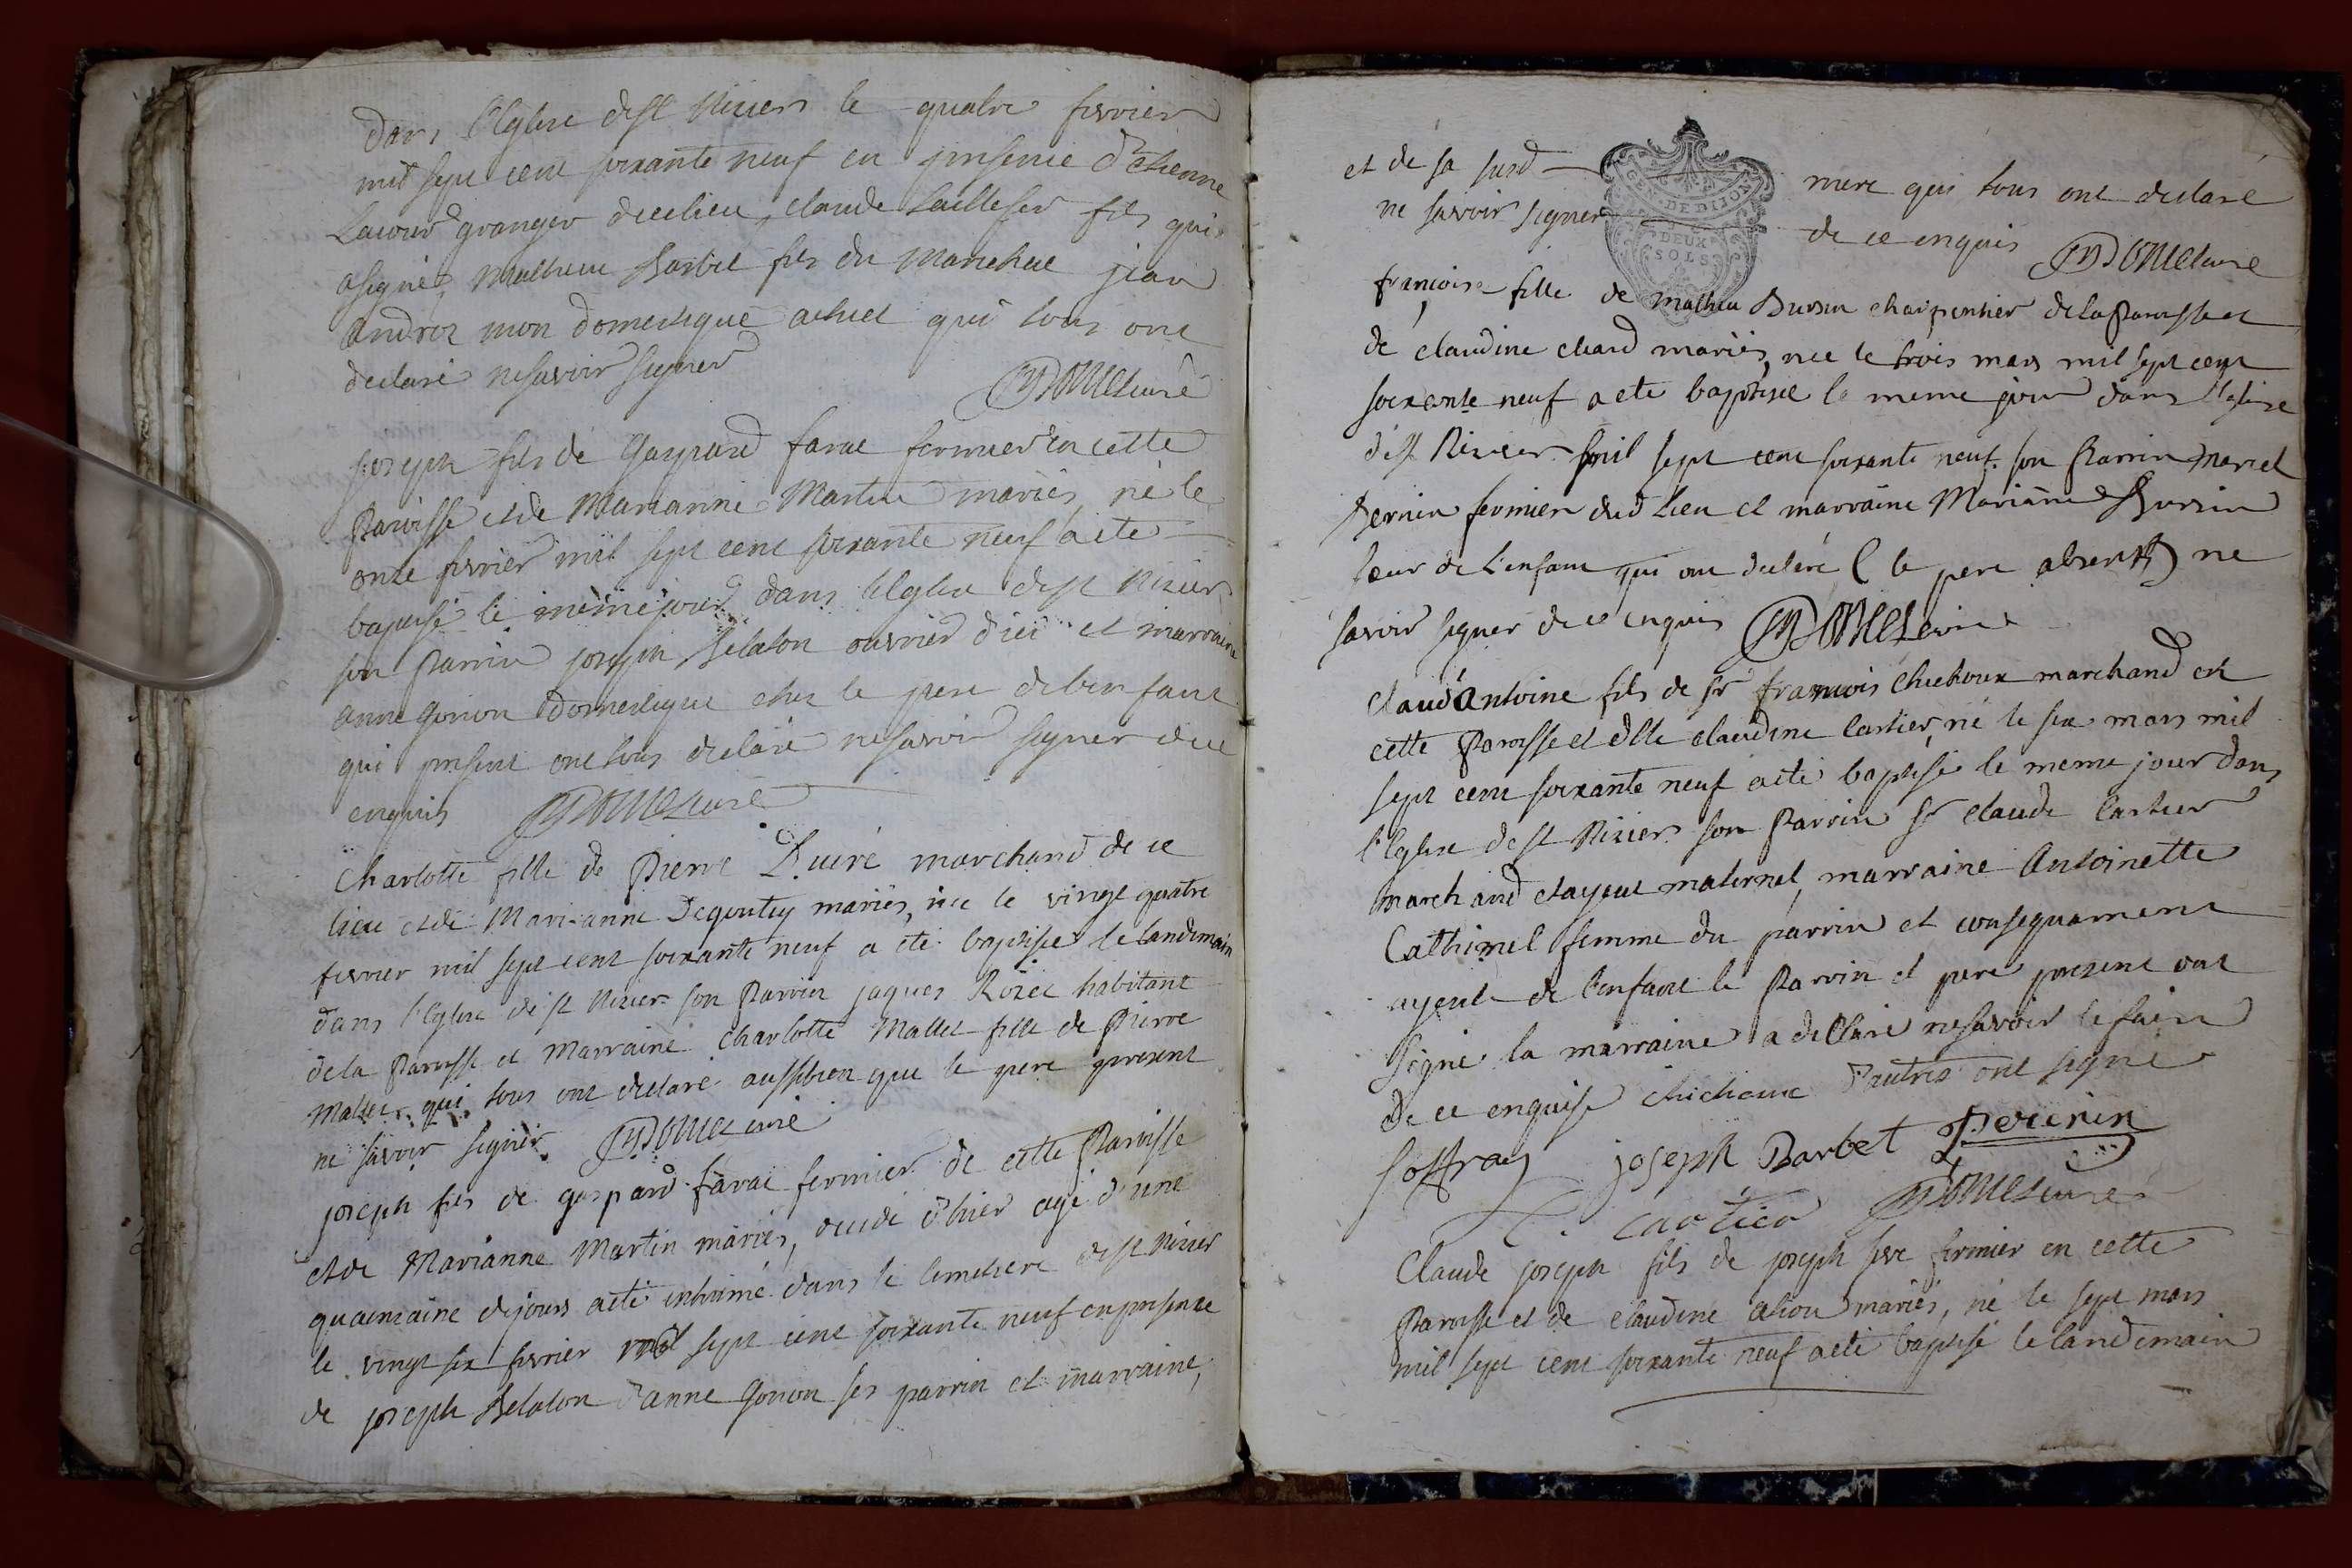 dans l'Eglise de st Nizier le quatre fevrier
mil sept cent soixante neuf en presence d'etienne
granger de ce lieu, claude fils qui
a signé, Mathieu Barbet fils du Marechal jean
mon domestique actuel qui tous ont
declaré ne savoir signer
curé
joseph fils de Gaspard farae fermier en cette
Paroisse et de Marianne Martin mariés, né le
onze fevrier mil sept cent soixante neuf a eté
baptisé le meme jour dans l'Eglise de st Nizier
son Parrin joseph Belaton ouvrier d'ici et marraine
anne gonon domestique chez le pere de l'enfant
qui present ont tous declaré ne savoir signer de ce
enquis curé
Charlotte fille de Pierre marchand de ce
lieu et de Marianne Degoutey mariés, née le vingt quatre
fevrier mil sept cent soixante neuf a eté baptisée le landemain
dans l'Eglise de st Nizier son Parrin jaques Rozet habitant
de la Paroisse et Marraine Charlotte Mallet fille de Pierre
Mallet qui tous ont declaré aussibien que le pere present
ne savoir signer curé
joseph fils de gaspard farae fermier de cette Paroisse
et de Marianne Martin mariés, decedé d'hier agé d'une
quainzaine de jours a eté inhumé dans le cimetiere de st Nizier
le vingt six fevrier mil sept cent soixante neuf en presence
de joseph Belaton d'anne gonon ses parrin et marraine,
et de sa susd mere qui tous ont declaré
ne savoir signer de ce enquis curé
GEN. DE DIJON
DEUX
SOLS
françoise fille de mathieu Bursin charpentier de la Paroisse et
de claudine chard mariés, née le trois mars mil sept cent
soixante neuf a eté baptisée le meme jour dans l'Eglise
de st Nizier mil sept cent soixante neuf. son Parrin marcel
fermier dud lieu et marraine Marianne Bursin
sœur de l'enfant qui ont declaré (le pere absent) ne
savoir signer de ce enquis curé
Claud antoine fils de sr françois Chichoux marchand en
cette Paroisse et dlle claudine Cartier, né le six mars mil
sept cent soixante neuf a eté baptisé le meme jour dans
l'Eglise de st Nizier son Parrin sr Claude Cartier
marchand et ayeul maternel, marraine Antoinette
Cathimel femme du parrin et consequament
ayeule de l'enfant le Parrin et pere present ont
signé la marraine a declaré ne savoir le faire
de ce enquise chichoux d'autres ont signé
joffray joseph Barbet Pererin
Cartier curé
Claude joseph fils de joseph feve fermier en cette
Paroisse et de claudine mariés, né le sept mars
mil sept cent soixante neuf a eté baptisé le landemain